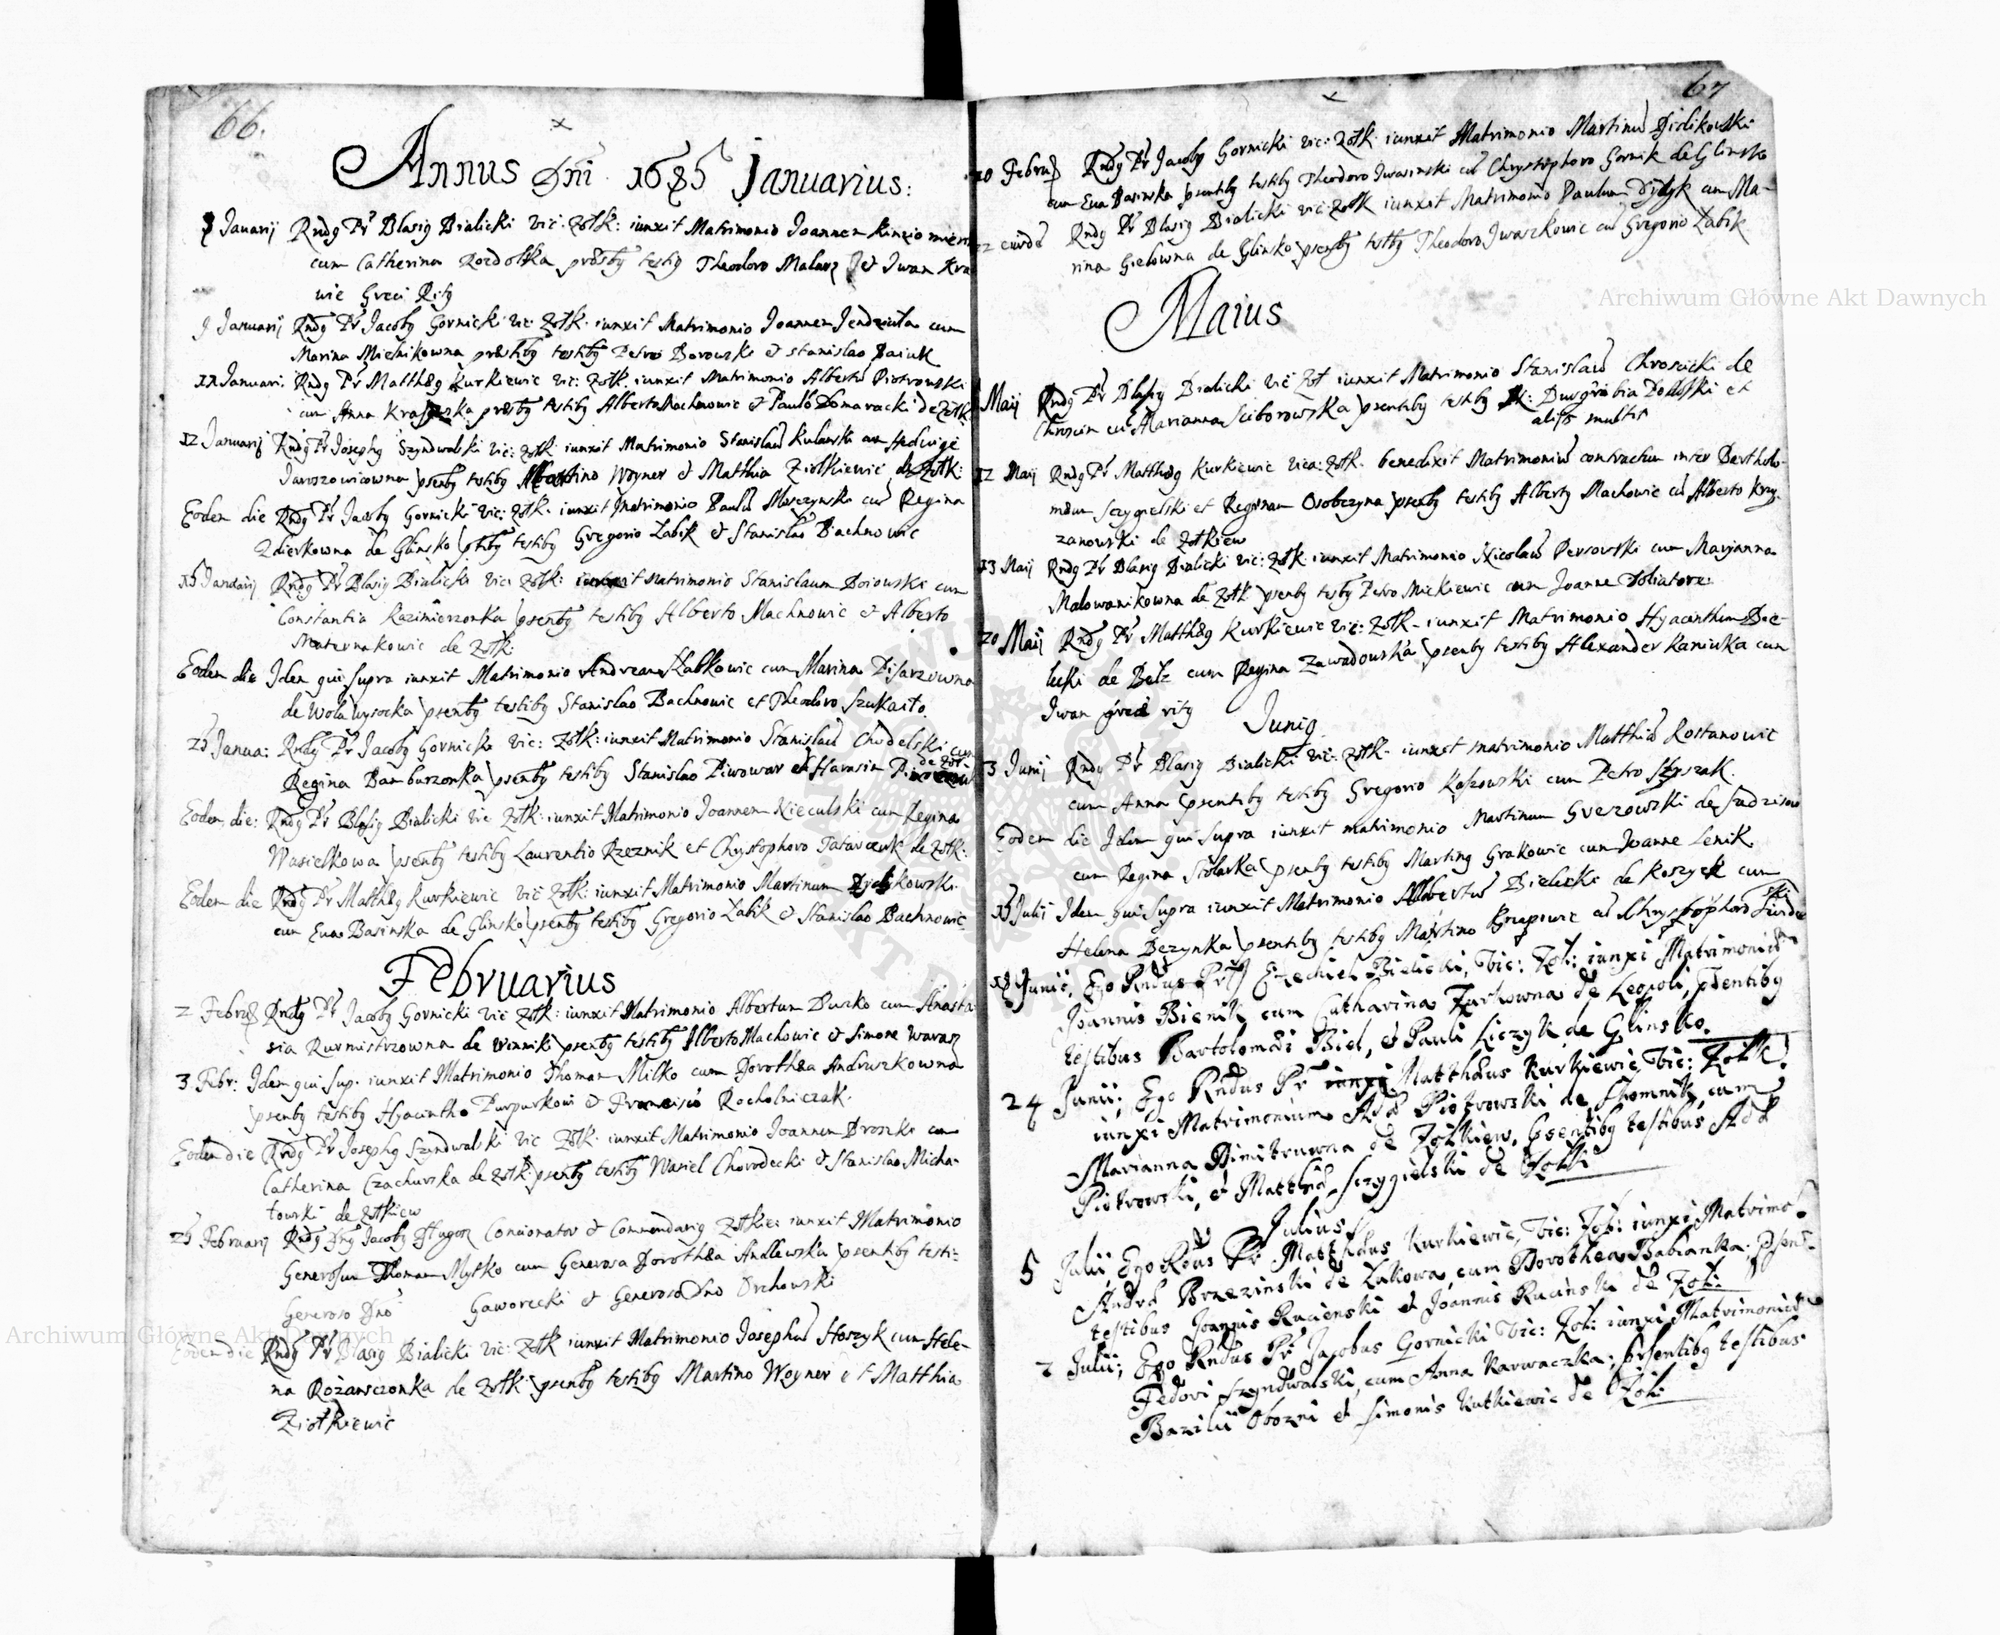 66.
Annus Dni 1685 Januarius:
Januarij Rndg Pr Blasig Bialicki vic: Zolk: iunxit Matrimonio Joannem
cum Catherina Rozdolska testib Theodoro Malarz et Iwan Kra
wic Greci Ritg
Januarij Rndg Pr Jacobg Gornicki vic Zolk: iunxit Matrimonio Joannem Jendziula cum
Marina Mielnikowna testibg Petro Borowski et Stanislao Baiuk
Januari. Rndg Pr Matthæg Kurkiewic vic: Zolk. iunxit Matrimonio Albertu Piotrowski
cum Anna testibg Alberto Machnowic et Paulo Domaracki de Zolk
12 Januarij Rndg Pr Josephg Szyndwalski vic: Zolk iunxit Matrimonio Stanislau Kulawski cum Hedvige
Jaroszowicowna psentbg testibg Martino Woyner et Matthia Ziolkiewic de Zolk:
Eodem die Rndg Pr Jacobg Gornicki vic: Zolk. iunxit Matrimonio Paulu cu Regina
Zdierkowna de Glinsko testibg Gregorio Labik et Stanislao Bachnowic
15 Januarij Rndg Pr Blasig Bialicki vic: Zolk: iunxit Matrimonio Stanislaum Boiowski cum
Constantia Kazimierzonka psentbg testibg Alberto Machnowic et Alberto
Maternakowic de Zolk:
Eodem die Idem qui supra iunxit Matrimonio Andream Labkowic cum Marina Pisarzowna
de Wola Wysocka psentbg testibg Stanislao Bachnowic et Theodoro Szukaito.
25 Janua: Rndg Pr Jacobg Gornicki vic: Zolk: iunxit Matrimonio Stanislau Chodelski cum
Regina Bamburzonka psentbg testibg Stanislao Piwowar et Harasim de Zol:
Eodem die: Rndg Pr Blasig Bialicki vic Zolk: iunxit Matrimonio Joannem Nieculski cum Regina
Wasielkowa psentbg testibg Laurentio Rzeznik et Chrystophoro Tatarczuk de Zolk:
Eodem die Rndg Pr Matthæg Kurkiewic vic Zolk: iunxit Matrimonio Martinum
cum Eua Basinska de Glinsko psentbg testibg Gregorio Labik et Stanislao Bachnowic
Februarius
2 Februa Rndg Pr Jacobg Gornicki vic Zolk: iunxit Matrimonio Albertum Duszko cum Anasta
sia Rurmistrzowna de Winniki psentbg testibg Alberto Machowic et Simone Warasz
3 Febr: Idem qui sup. iunxit Matrimonio Thomam Milko cum Dorothea Andruszkowna
psentbg testibg Hyacintho Purpurkowi et Francisco Rocholniczak.
Eodem die Rndg Pr Josephg Szyndwalski vic Zolk. iunxit Matrimonio Joannem Droszki cum
Catherina Czachurska de Zolk: psentbg testibg Wasiel Chorodecki et Stanislao Micha-
lowski de Zolkiew
25 Februarij Rndg Dng Jacobg Dlugosz Concionator et Commendarig Zolkie: iunxit Matrimonio
Generosum Thomam Mysko cum Generosa Dorothea Andlewska psentibg testi:
Generoso Dno Gaworecki et Generoso Dno Orchowski
Eodem die Rndg Pr Blasig Bialicki vic: Zolk iunxit Matrimonio Josephu Hoszyk cum Hele-
na Rożanczonka de Zolk psentbg testibg Martino Woyner et Matthia
Ziolkiewic
67
20 Februa Rndg Pr Jacobg Gornicki vic: Zolk. iunxit Matrimonio Martinu Dzidikowski
cum Eua Basinska psentibg testibg Theodoro Iwasinski cu Chrystophoro Gornik de Glinsko
Rndg Pr Blasig Bialicki vic Zolk iunxit Matrimonio Paulum Dydyk cum Ma-
rina Gielowna de Glinsko psentbg testbg Theodoro Jwaszkowic cu Gregorio Labik
Maius
Maij Rndg Pr Blasig Bialicki vic Zol iunxit Matrimonio Stanislau Chroscicki de
Chroscin cu Marianna Sciborowska psentibg testibg Burgrabia et
alijs multis
12 Maij Rndg Pr Matthæg Kurkiewic vica: Zolk. benedixit Matrimoniu contractum inter Bartholo-
mæum Szczygielski et Reginam Osobczyna psentbg testibg Alberto Machowic cu Alberto Krzy-
zanowski de Zolkiew
13 Maij Rndg Pr Blasig Bialicki vic: Zolk: iunxit Matrimonio Nicolau Persowski cum Marjanna
Malowanikowna de Zolk psentbg testbg Petro Mickiewic cum Joanne Doliatore.
20 Maij Rndg Pr Matthæg Kurkiewic vic: Zolk. iunxit Matrimonio Hyacinthum Boc-
lucki de Belz cum Regina Zawadowska psentbg testibg Alexander Kaniuka cum
Iwan græci ritg
Junig
3 Junij Rndg Pr Blasig Bialicki vic. Zolk. iunxit matrimonio Matthiu Rostanowic
cum Anna psentibg testibg Gregorio Kossowski cum Petro
Eodem die Idem qui supra iunxit matrimonio Martinum Grezowski de
cum Regina Stolarka psentbg testibg Marting Grakowic cum Joanne Lenik
Julij Idem qui supra iunxit Matrimonio Albertu Bielecki de Koszyck cum
Helena Bezynka psentibg testibg Martino Knapowic cu Chrystophoro
18 Junii, Ego Rndus Pr Ezechiel Bielicki, Vic: Zol: iunxi Matrimoniu
Joannis Bienik cum Catharina Zurkowna de Leopoli, psentibg
testibus Bartolomæi Biel, et Pauli Liczyk de Glinsko.
24 Junii; Ego Rndus Pr Matthæus Kurkiewic, Vic: Zolk:
iunxi Matrimonium Piotrowski de cum
Marianna Dimitruwna de Zolkiew, psentibg testibus
Piotrowski, et Matthia Szczygielski de Zolki
Julius
5 Julii Ego Rdus Pr Matthæus Kurkiewic, Vic: Zol: iunxi Matrimo:
Andræ Brzezinski de Lukowa, cum Dorothea Babianka; psent-
testibus Joannis Rucienski et Joannis Rucinski de Zol:
2 Julii; Ego Rndus Pr Jacobus Gornicki Vic: Zol: iunxi Matrimoniu
Fedori Szyndwalski, cum Anna Karwaczka; psentibg testibus
Bazilii Obozni et Simonis Kutkiewic de Zol:
Archiwum Główne Akt Dawnych
Archiwum Główne Akt Dawnych